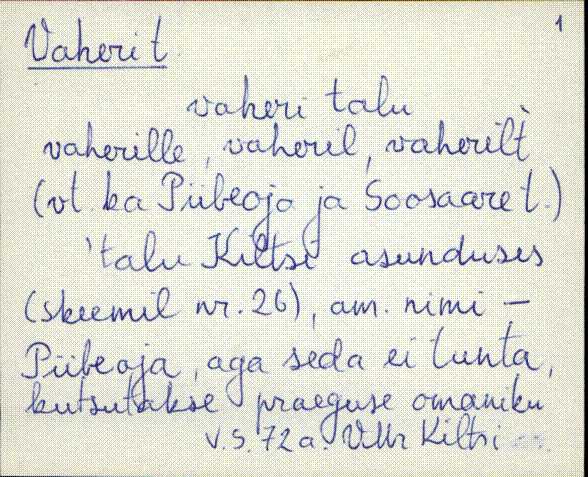 1
Vaheri t
vaheri talu
vaherille, vaheril, vaherilt
(vt. ka Piibeoja ja Soosaare t.)
'talu Kiltsi asunduses
(skeemil nr. 26), am. nimi –
Piibeoja, aga seda ei tunta,
kutsutakse praeguse omaniku
v.s. 72 a. VMr Kiltsi